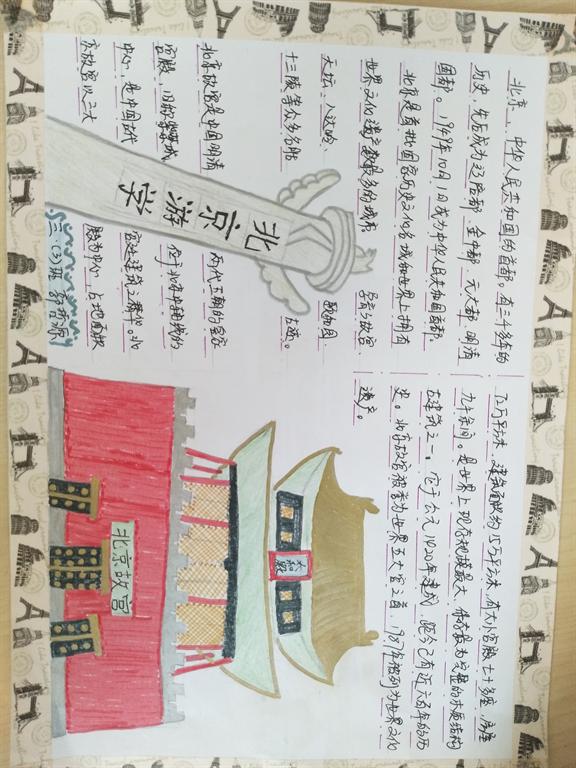 北京,中华人民共和国的首都。有三千多年的
历史,先后成为辽陪都、金中都、元大都、明清
国都。1949年10月1日成为中华人民共和国首都。
北京是首批国家历史文化名城和世界上拥有
世界文化遗产数最多的城市 故宫、
天坛、八达岭、颐和园、
十三陵等众多名胜古迹。
北京故宫是中国明清两代王朝的皇家
宫殿,旧称紫禁城位于北京中轴线的
中心,是中国古代宫廷建筑之精华。北
京故宫以三大殿为中心,占地面积
北京游学
三.(3)班
72万平方米,建筑面积约15万平方米,有大小宫殿七十多座,房屋
九千余间。是世界上现存规模最大、保存最为完整的木质结构
古建筑之一。它于公元1420年建成,距今已有近六百年的历
史。北京故宫被誉为世界五大宫之首,1987年被列为世界文化
遗产。
太和殿
北京故宫